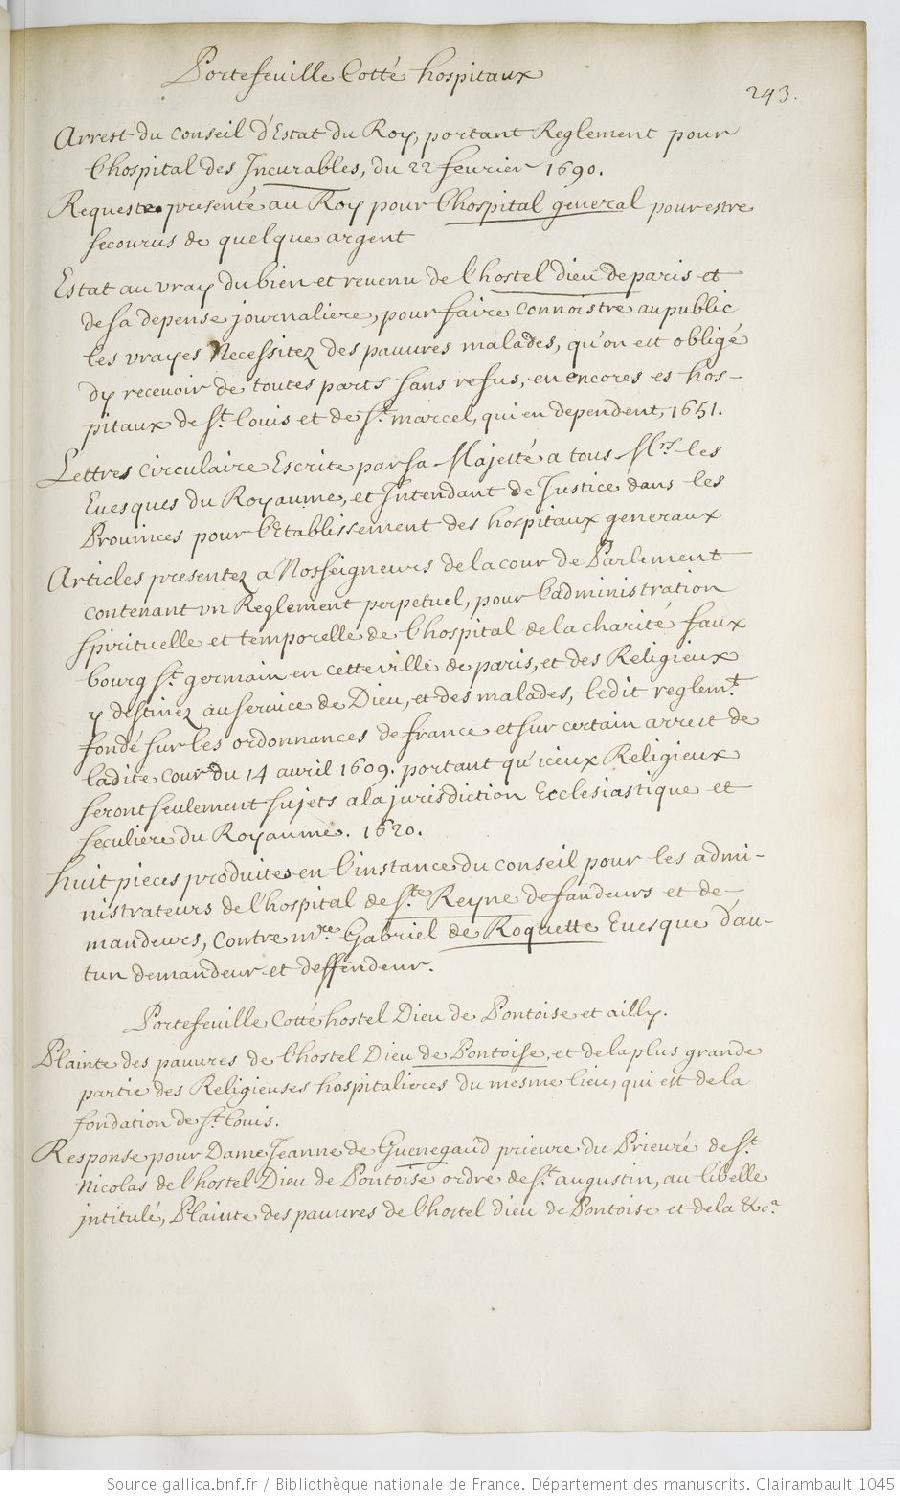 Portefeuille Cotté hospitaux
243.
Arrest du conseil d'Estat du Roy, portant Reglement pour
l'hospital des Incurables, du 22 fevrier 1690.
Requeste presenté au Roy pour l'hospital general pour estre
secourus de quelque argent
Estat au vray du bien et revenu de l'hostel dieu de paris et
de sa depense journaliere, pour faire connoistre au public
les vrayes Necessitez des pauvres malades, qu'on est obligé
dy recevoir de toutes parts sans refus, en encores es hos-
pitaux de St. Louis et de St. marcel, qui en dependent, 1651.
Lettres circulaire Escrite par sa Majesté a tous Mrs. les
Evesques du Royaume, et Intendant de Justice dans les
Provinces pour l'Etablissement des hospitaux generaux
Articles presentez a Nosseigneurs de la cour de Parlement
contenant un Reglement perpetuel, pour l'administration
spirituelle et temporelle de l'hospital de la charité faux
bourg St. germain en cette ville de paris, et des Religieux
y destinez au service de Dieu, et des malades, ledit reglemt.
fondé sur les ordonnances de france et sur certain arrest de
ladite cour du 14 avril 1609. portant qu'iceux Religieux
seront seulement sujets a la jurisdiction Ecclesiastique et
seculiere du Royaume. 1620.
huit pieces produites en l'instance du conseil pour les admi-
nistrateurs de l'hospital de Ste. Reyne defandeurs et de-
mandeurs, contre mre. Gabriel de Roquette Evesque d'au-
tun demandeur et deffendeur.
Portefeuille Cotté hostel Dieu de Pontoise et ailly.
Plainte des pauvres de l'hostel Dieu de Pontoise, et de la plus grande
partie des Religieuses hospitalieres du mesme lieu, qui est de la
fondation de St. Louis.
Response pour Dame Jeanne de Guenegaud prieure du Prieuré de St.
Nicolas de l'hostel Dieu de Pontoise ordre de St. augustin, au libelle
intitulé, Plainte des pauvres de l'hostel dieu de Pontoise et de la &ca.
Source gallica.bnf.fr / Bibliothèque nationale de France. Département des manuscrits. Clairambault 1045